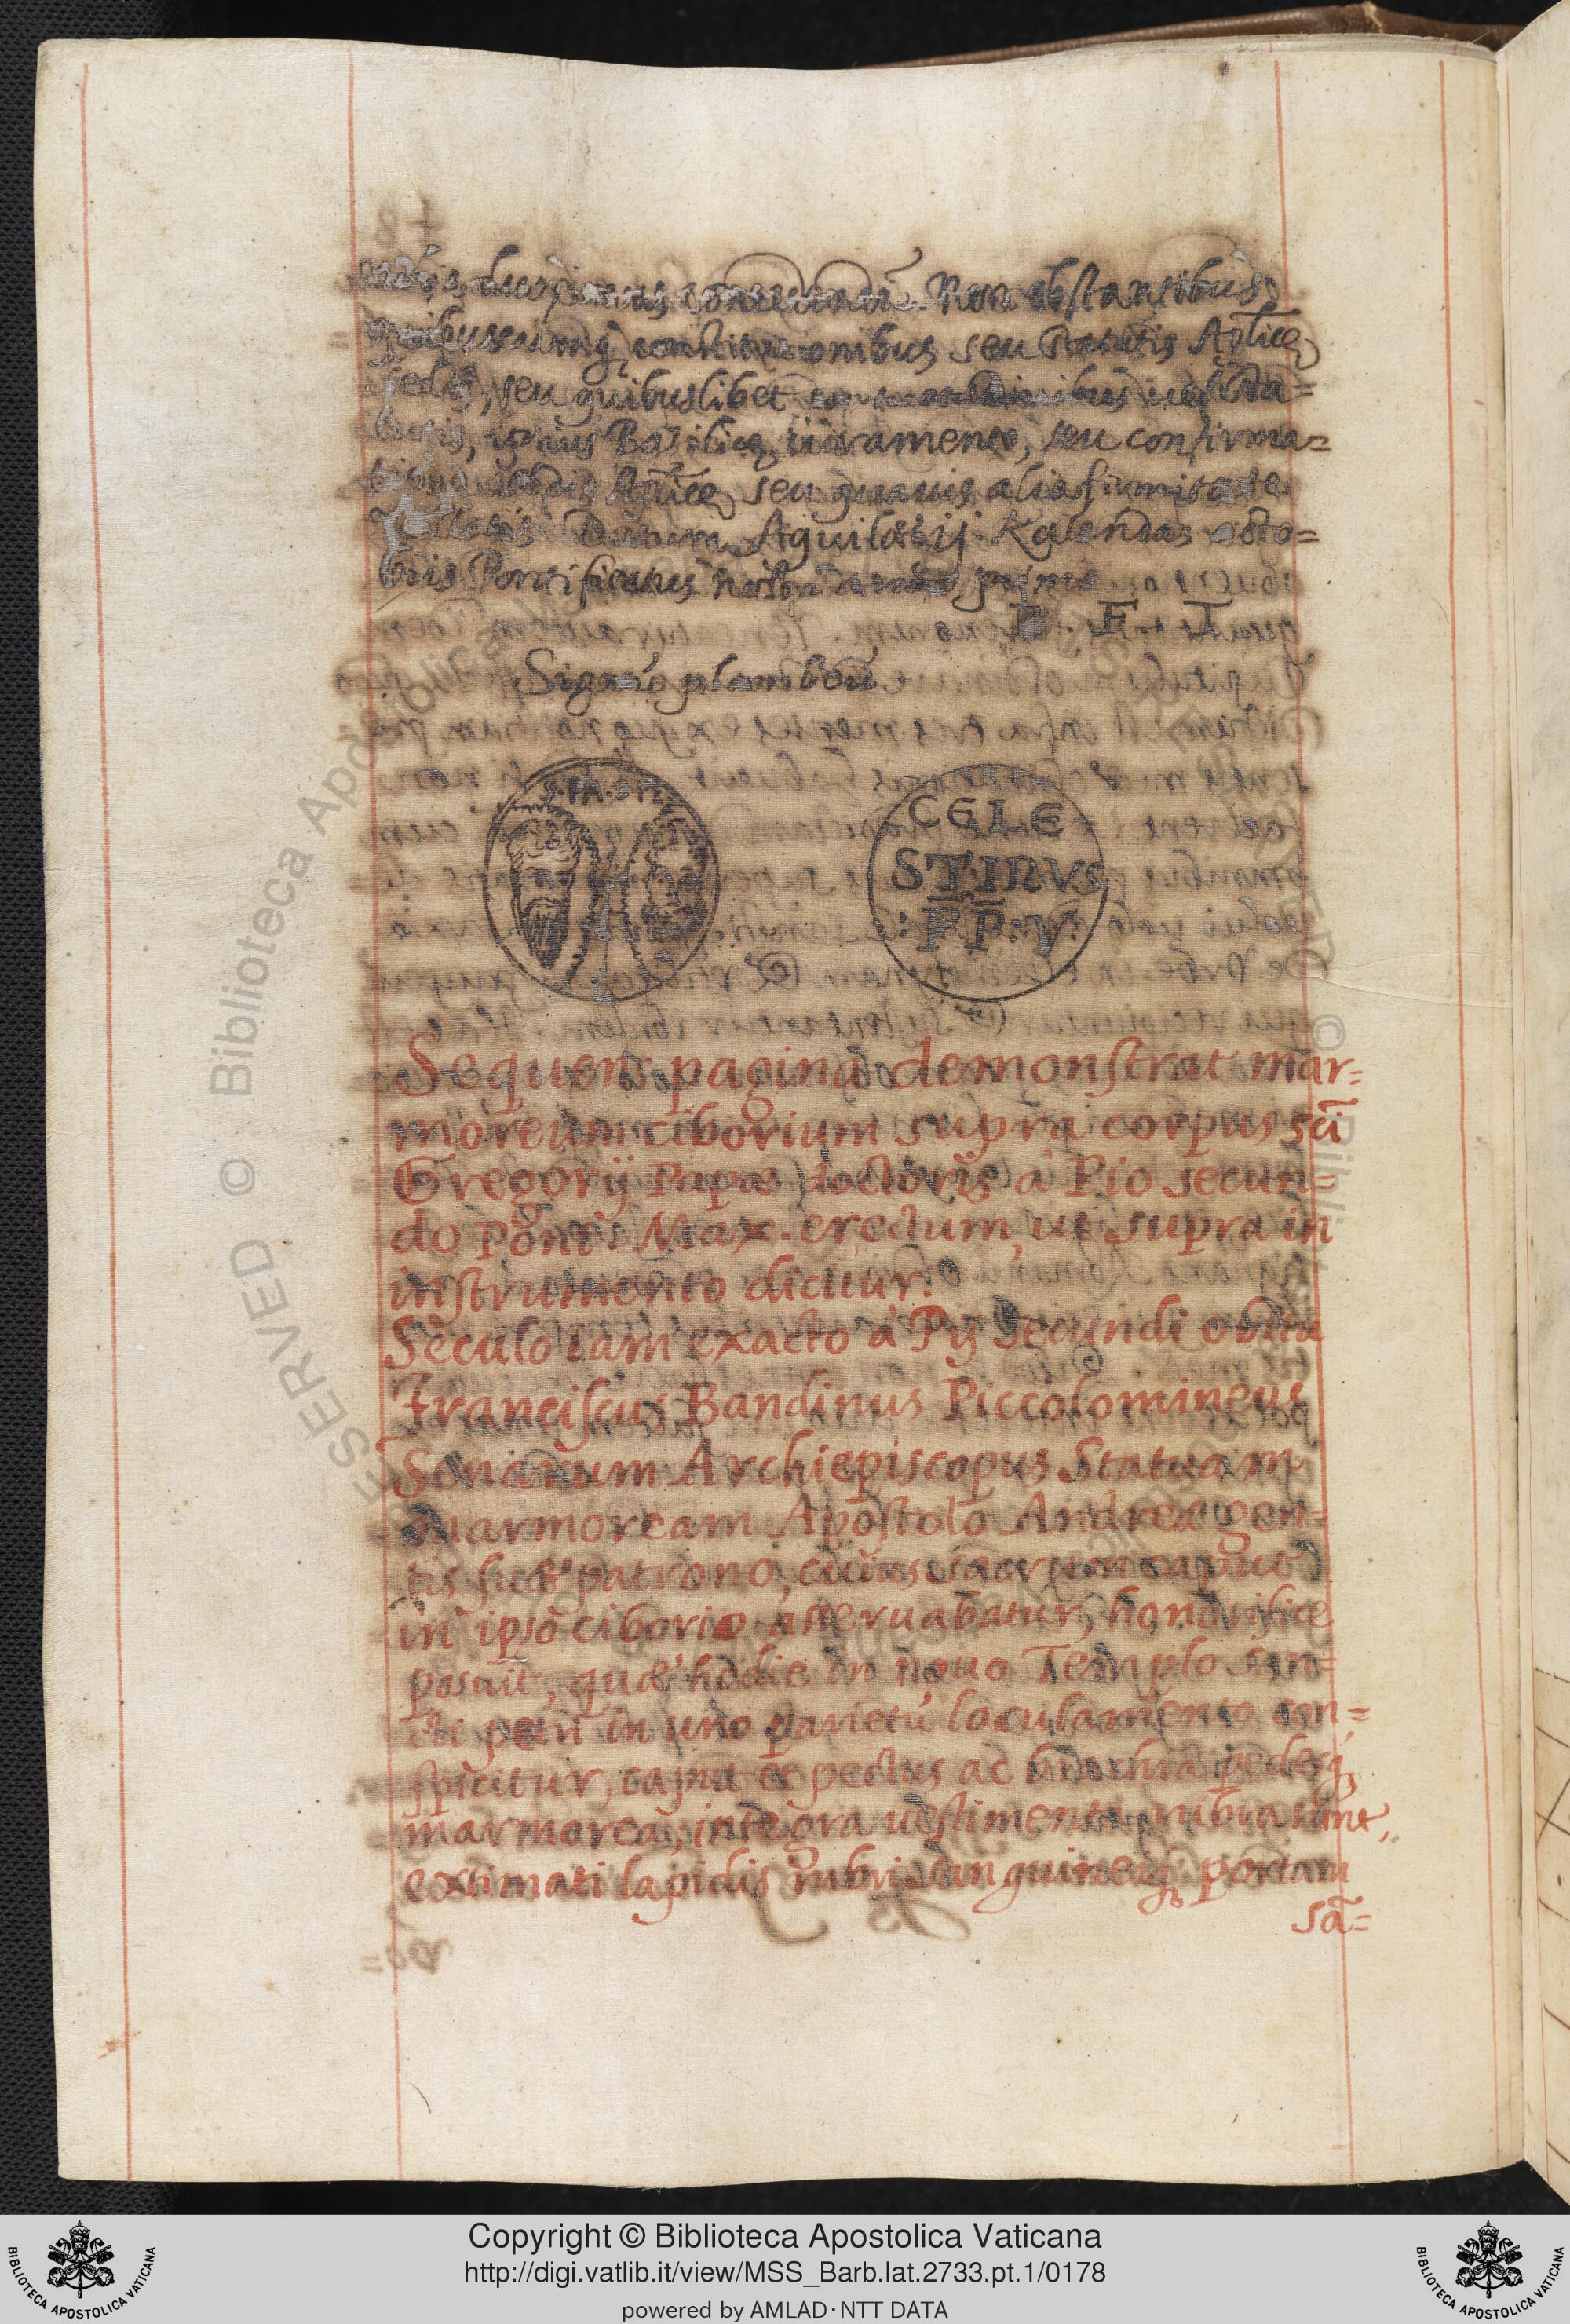 duximus concedendã. Non obstantibus
quibuscumq; constitutionibus seu statutis Aplicę
sedis, seu quibuslibet
ipsius Basilicę, iuramento, seu confirma=
sedis Aplicę seu quauis alia firmitate
Datum Aquilę ij Kalendas octo=
bris Pontificatus nostri anno primo
P. F. T.
Signũ plumbeũ
S·PA·S·PE
CELE
STINVS
·P̅P̅·V·
Sequens pagina demonstrat mar=
moreum ciborium supra corpus sci̅
Gregorij Papæ doctoris à Pio secun=
do Pont. Max. erectum, ut supra in
instrumento dicitur.
Seculo iam exacto à Pij secundi obitu
Franciscus Bandinus Piccolomineus
Senarum Archiepiscopus Statuam
marmoream Apostolo Andreæ gen=
tis suæ patrono, cuius sacrum caput
in ipso ciborio asseruabatur, honorifice
posuit, quæ hodie in nouo Templo san=
cti petri in uno parietũ loculamento con=
spicitur, caput et pectus ac brachia pedesq;
marmorea, integra uestimenta rubra sunt,
extimati lapidis rubri sanguineiq; portam
sã=
Copyright © Biblioteca Apostolica Vaticana
http://digi.vatlib.it/view/MSS_Barb.lat.2733.pt.1/0178
powered by AMLAD·NTT DATA
BIBLIOTECA APOSTOLICA VATICANA
BIBLIOTECA APOSTOLICA VATICANA